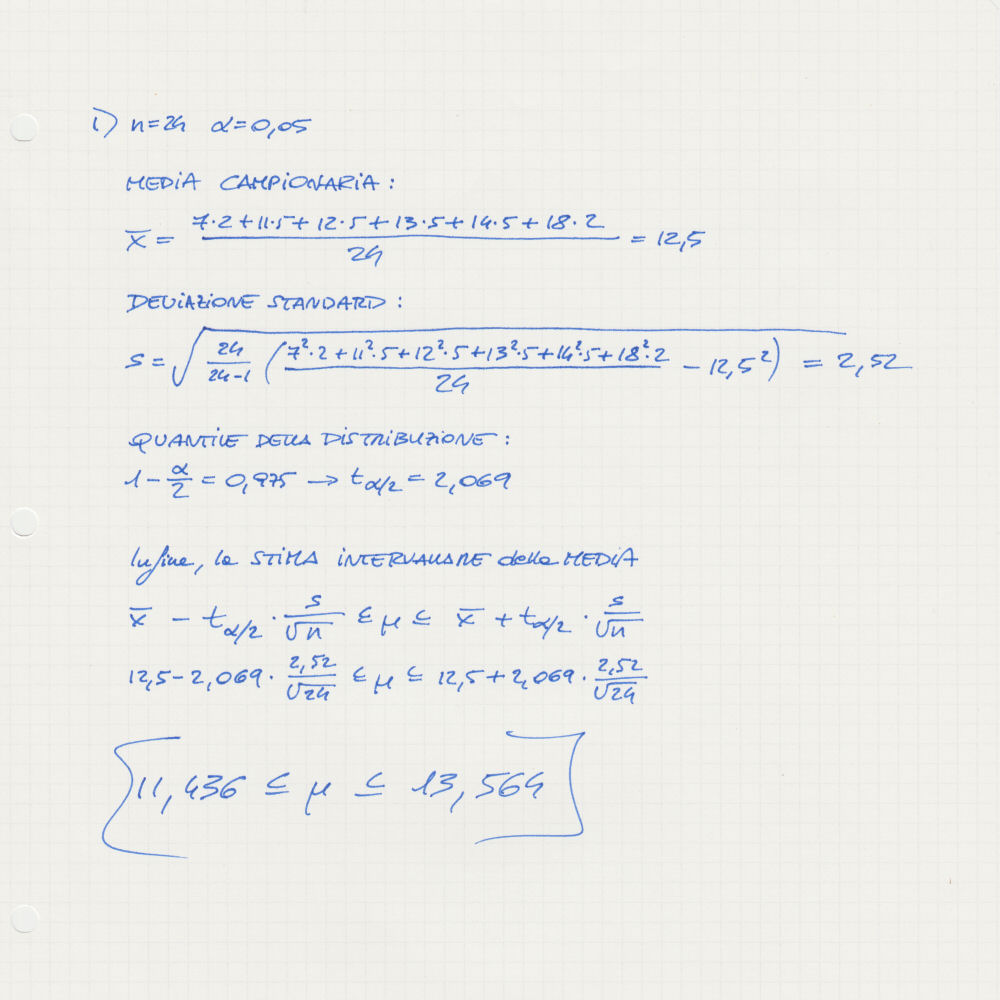 1) n=24 α=0,05
MEDIA CAMPIONARIA:
x̄ = (7·2+11·5+12·5+13·5+14·5+18·2)/24 = 12,5
DEVIAZIONE STANDARD:
s = √(24/(24-1) ((7²·2+11²·5+12²·5+13²·5+14²·5+18²·2)/24 - 12,5²)) = 2,52
QUANTILE DELLA DISTRIBUZIONE:
1-α/2 = 0,975 → t_α/2 = 2,069
Infine, la STIMA INTERVALLARE della MEDIA
x̄ - t_α/2 · s/√n ≤ μ ≤ x̄ + t_α/2 · s/√n
12,5-2,069 · 2,52/√24 ≤ μ ≤ 12,5+2,069 · 2,52/√24
11,436 ≤ μ ≤ 13,564